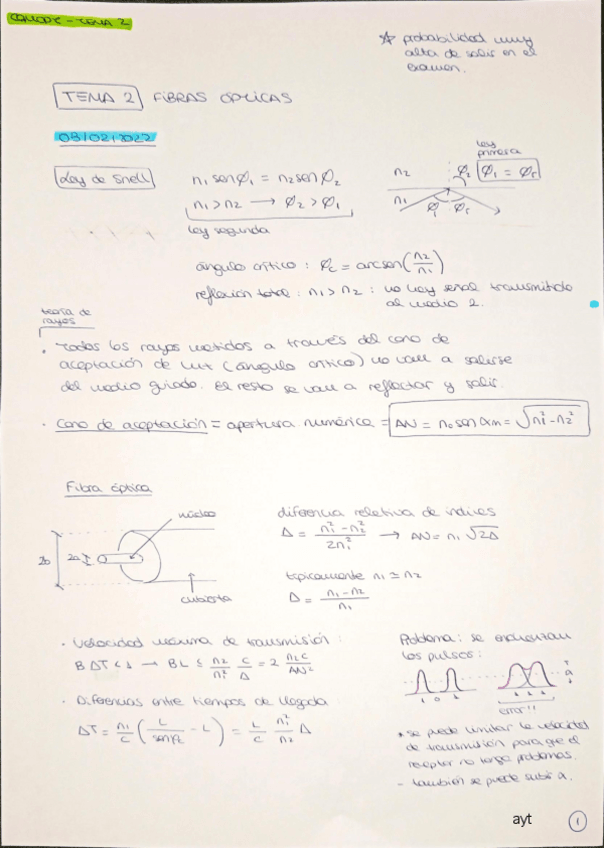 COMODE - TEMA 2
* probabilidad muy
alta de salir en el
examen.
TEMA 2 FIBRAS ÓPTICAS
08/02/2022
Ley de Snell
n₁ senφ₁ = n₂ senφ₂
n₁ > n₂ → φ₂ > φ₁
Ley segunda
n₂
n₁
φ₂
φᵢ φᵣ
Ley
primera
φ₁ = φᵣ
ángulo crítico : φc = arcsen(n₂/n₁)
reflexión total : n₁ > n₂ : no hay señal transmitida
al medio 2.
teoría de
rayos
· Todos los rayos metidos a través del cono de
aceptación de luz (ángulo crítico) no van a salirse
del medio guiado. El resto se van a refractar y salir.
· Cono de aceptación = apertura numérica = AN = n₀ sen αm = √(n₁² - n₂²)
Fibra óptica
núcleo
2b
2a
cubierta
diferencia relativa de índices
Δ = (n₁² - n₂²)/(2n₁²) → AN = n₁ √2Δ
típicamente n₁ ≃ n₂
Δ = (n₁ - n₂)/n₁
· Velocidad máxima de transmisión :
B ΔT < 1 → BL ≤ n₂/n₁² C/Δ = 2 n₂c/AN²
· Diferencias entre tiempos de llegada
ΔT = n₁/c (L/senφc - L) = L/c n₁²/n₂ Δ
Problema : se ensanchan
los pulsos :
1 0 1
1 1 1
error!!
* se puede limitar la velocidad
de transmisión para que el
receptor no tenga problemas.
- también se puede subir a.
ayt
1